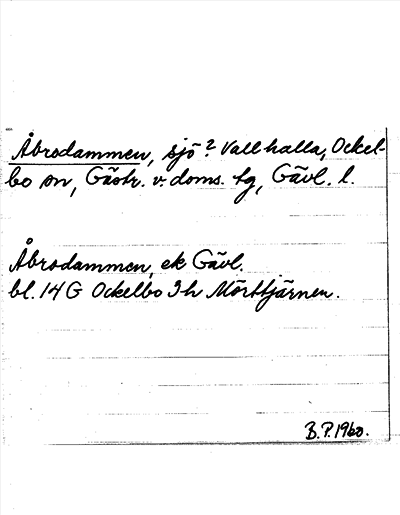 Åbrodammen, sjö? Vallhalla, Ockel-
bo sn, Gästr. v. doms. tg, Gävl. l.
Åbrodammen, ek Gävl.
bl. 14 G Ockelbo 3h Mörttjärnen.
B.P. 1960.